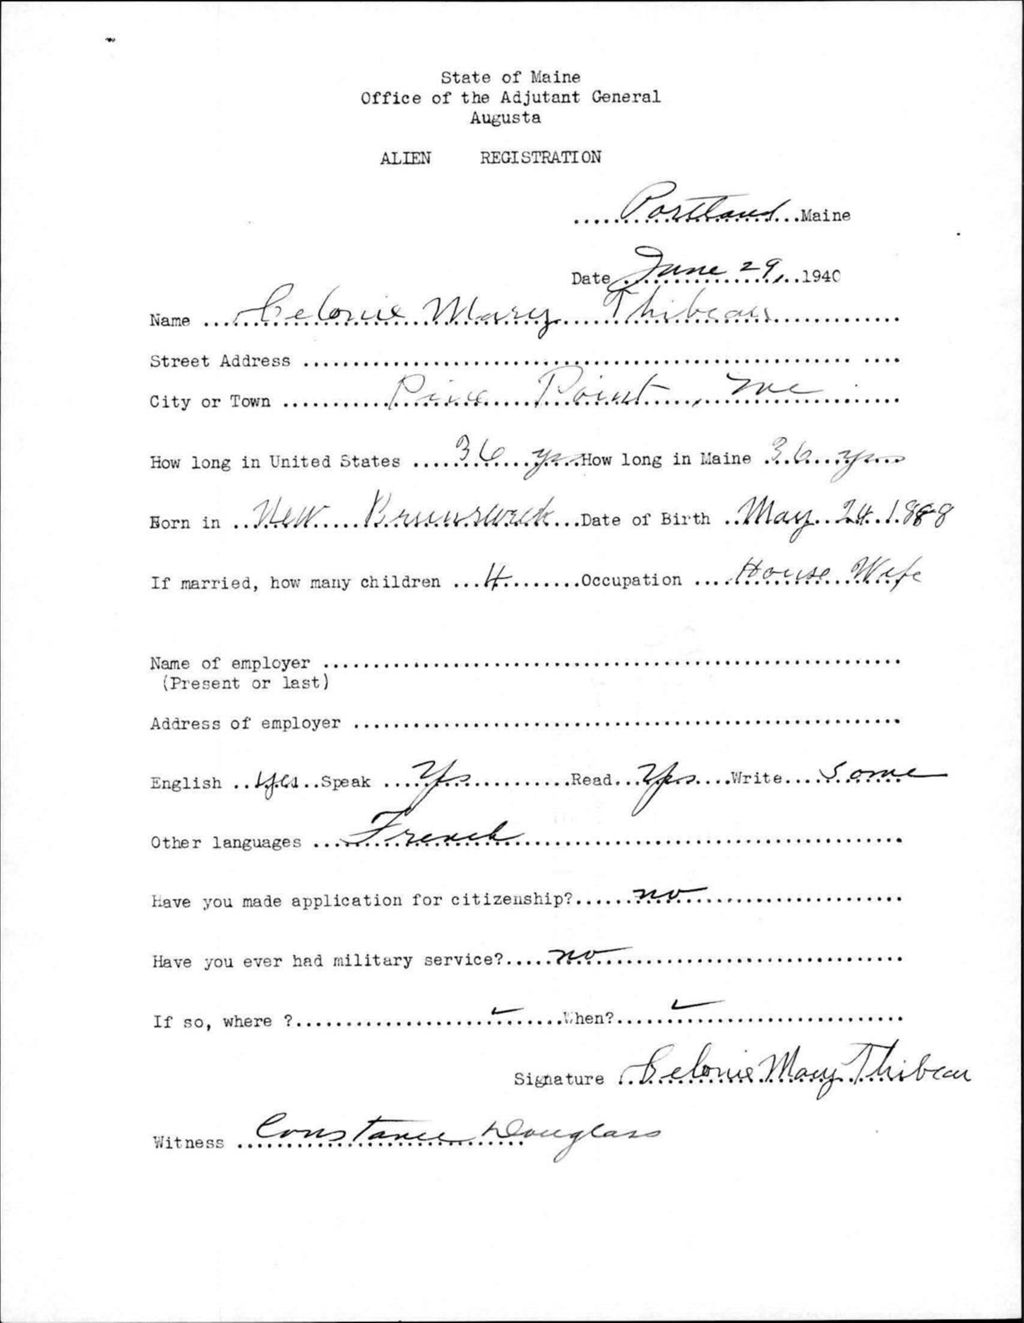 State of Maine
Office of the Adjutant General
Augusta
ALIEN REGISTRATION
Portland Maine
Date June 29, 1940
Name Celonie Mary Thibeau
Street Address
City or Town Pine Point, Me
How long in United States 36 yrs How long in Maine 36 yrs
Born in New Brunswick Date of Birth May 24 1888
If married, how many children 4 Occupation House Wife
Name of employer
(Present or last)
Address of employer
English yes Speak Yes Read Yes Write Some
Other languages French
Have you made application for citizenship? no
Have you ever had military service? no
If so, where ? When?
Signature Celonie Mary Thibeau
Witness Constance Douglass